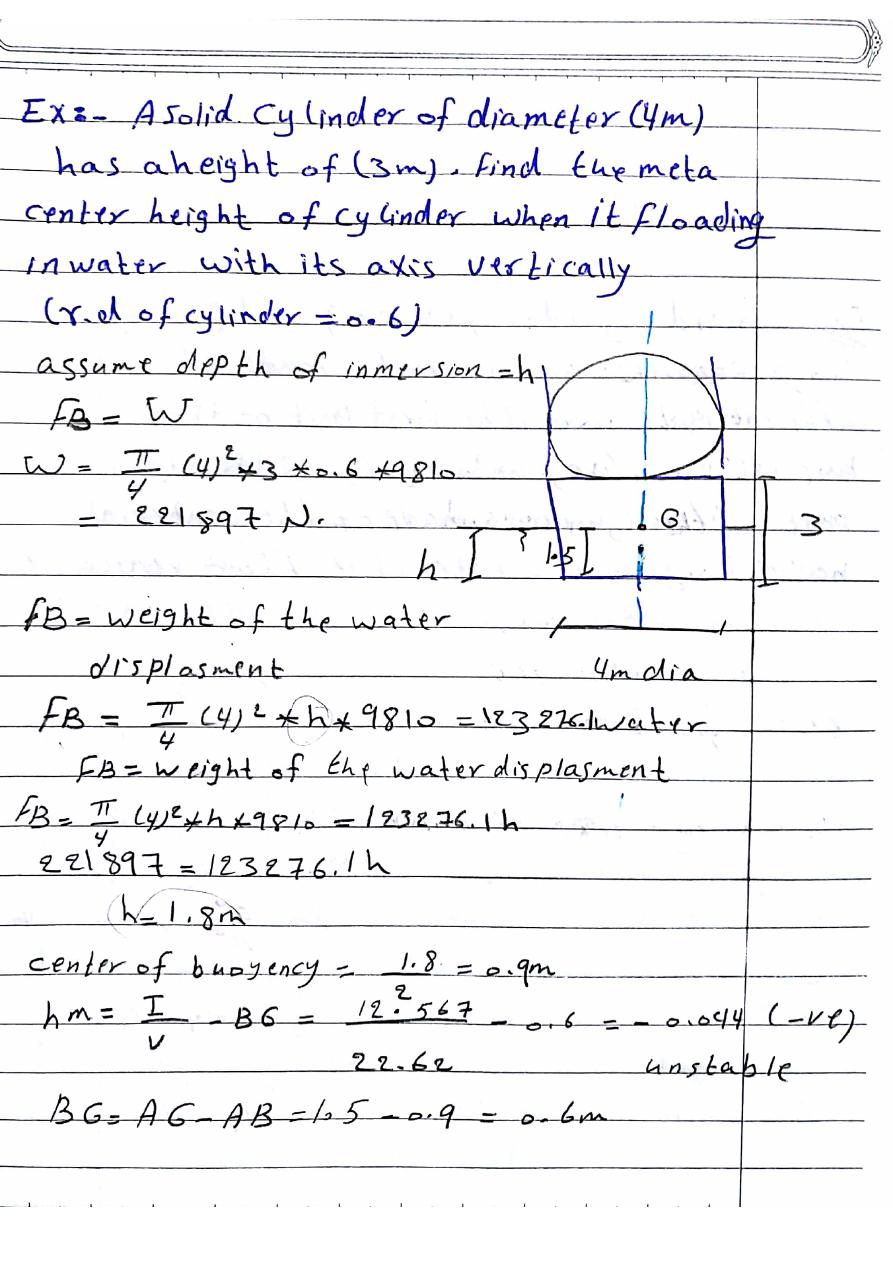 Ex:- A solid cylinder of diameter (4m)
has a height of (3m). find the meta
center height of cylinder when it floading
in water with its axis vertically
(r.d of cylinder = 0.6)
assume depth of inmersion = h
FB = W
W = π/4 (4)² * 3 * 0.6 * 9810
= 221897 N.
G
3
h
1.5
fB = weight of the water
displasment
4m dia
FB = π/4 (4)² * h * 9810 = 123276.1 water
FB = weight of the water displasment
FB = π/4 (4)² * h * 9810 = 123276.1 h
221897 = 123276.1 h
h = 1.8m
center of buoyency = 1.8/2 = 0.9m
hm = I/V - BG = 12.567/22.62 - 0.6 = - 0.044 (-ve)
unstable
BG = AG - AB = 1.5 - 0.9 = 0.6m